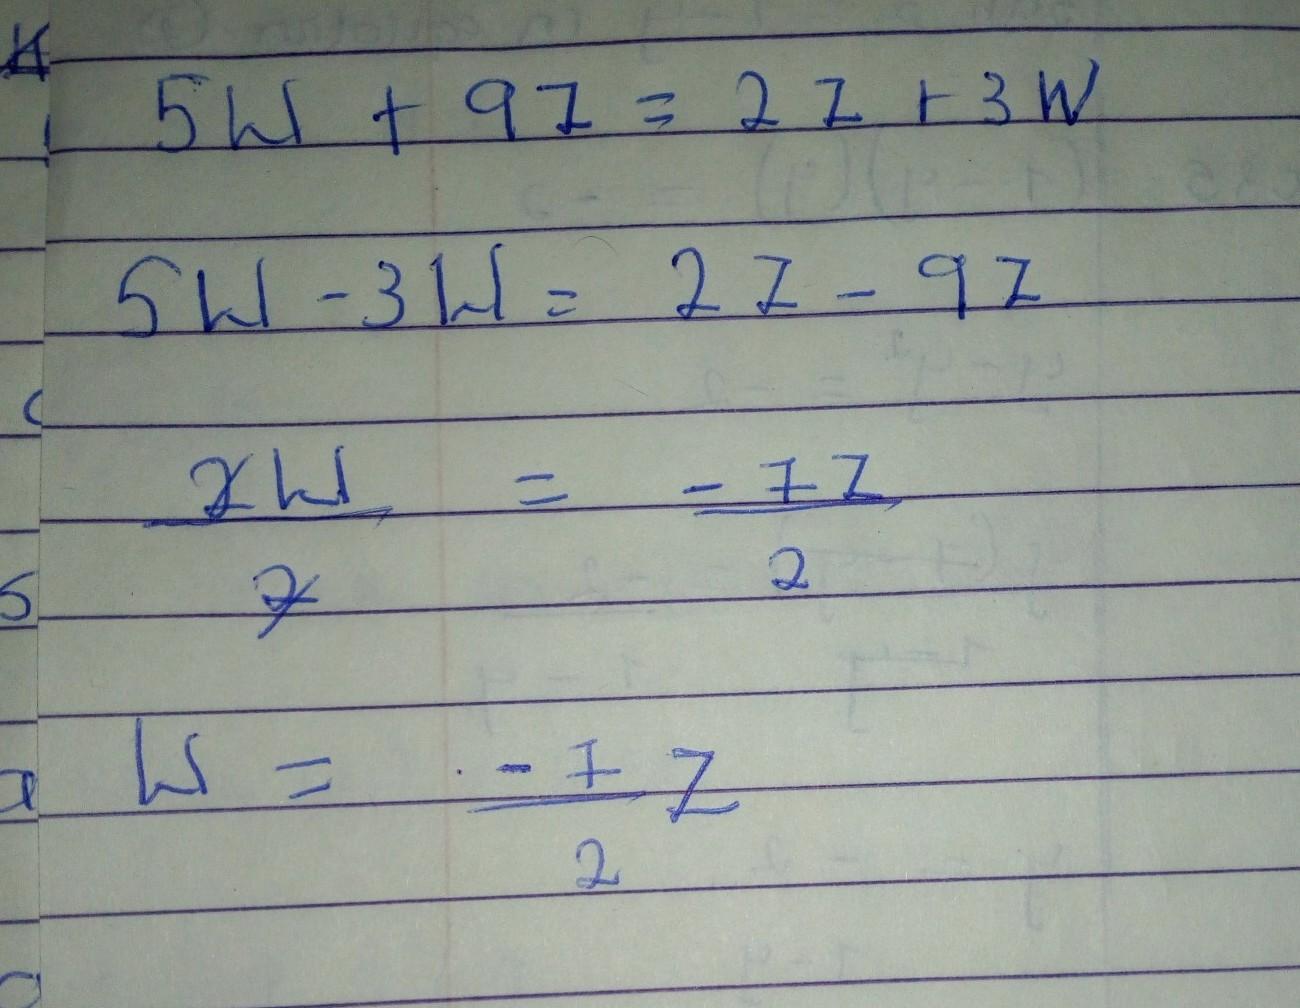 5W + 9Z = 2Z + 3W
5W - 3W = 2Z - 9Z
2W = -7Z
2 2
W = -7 Z
2